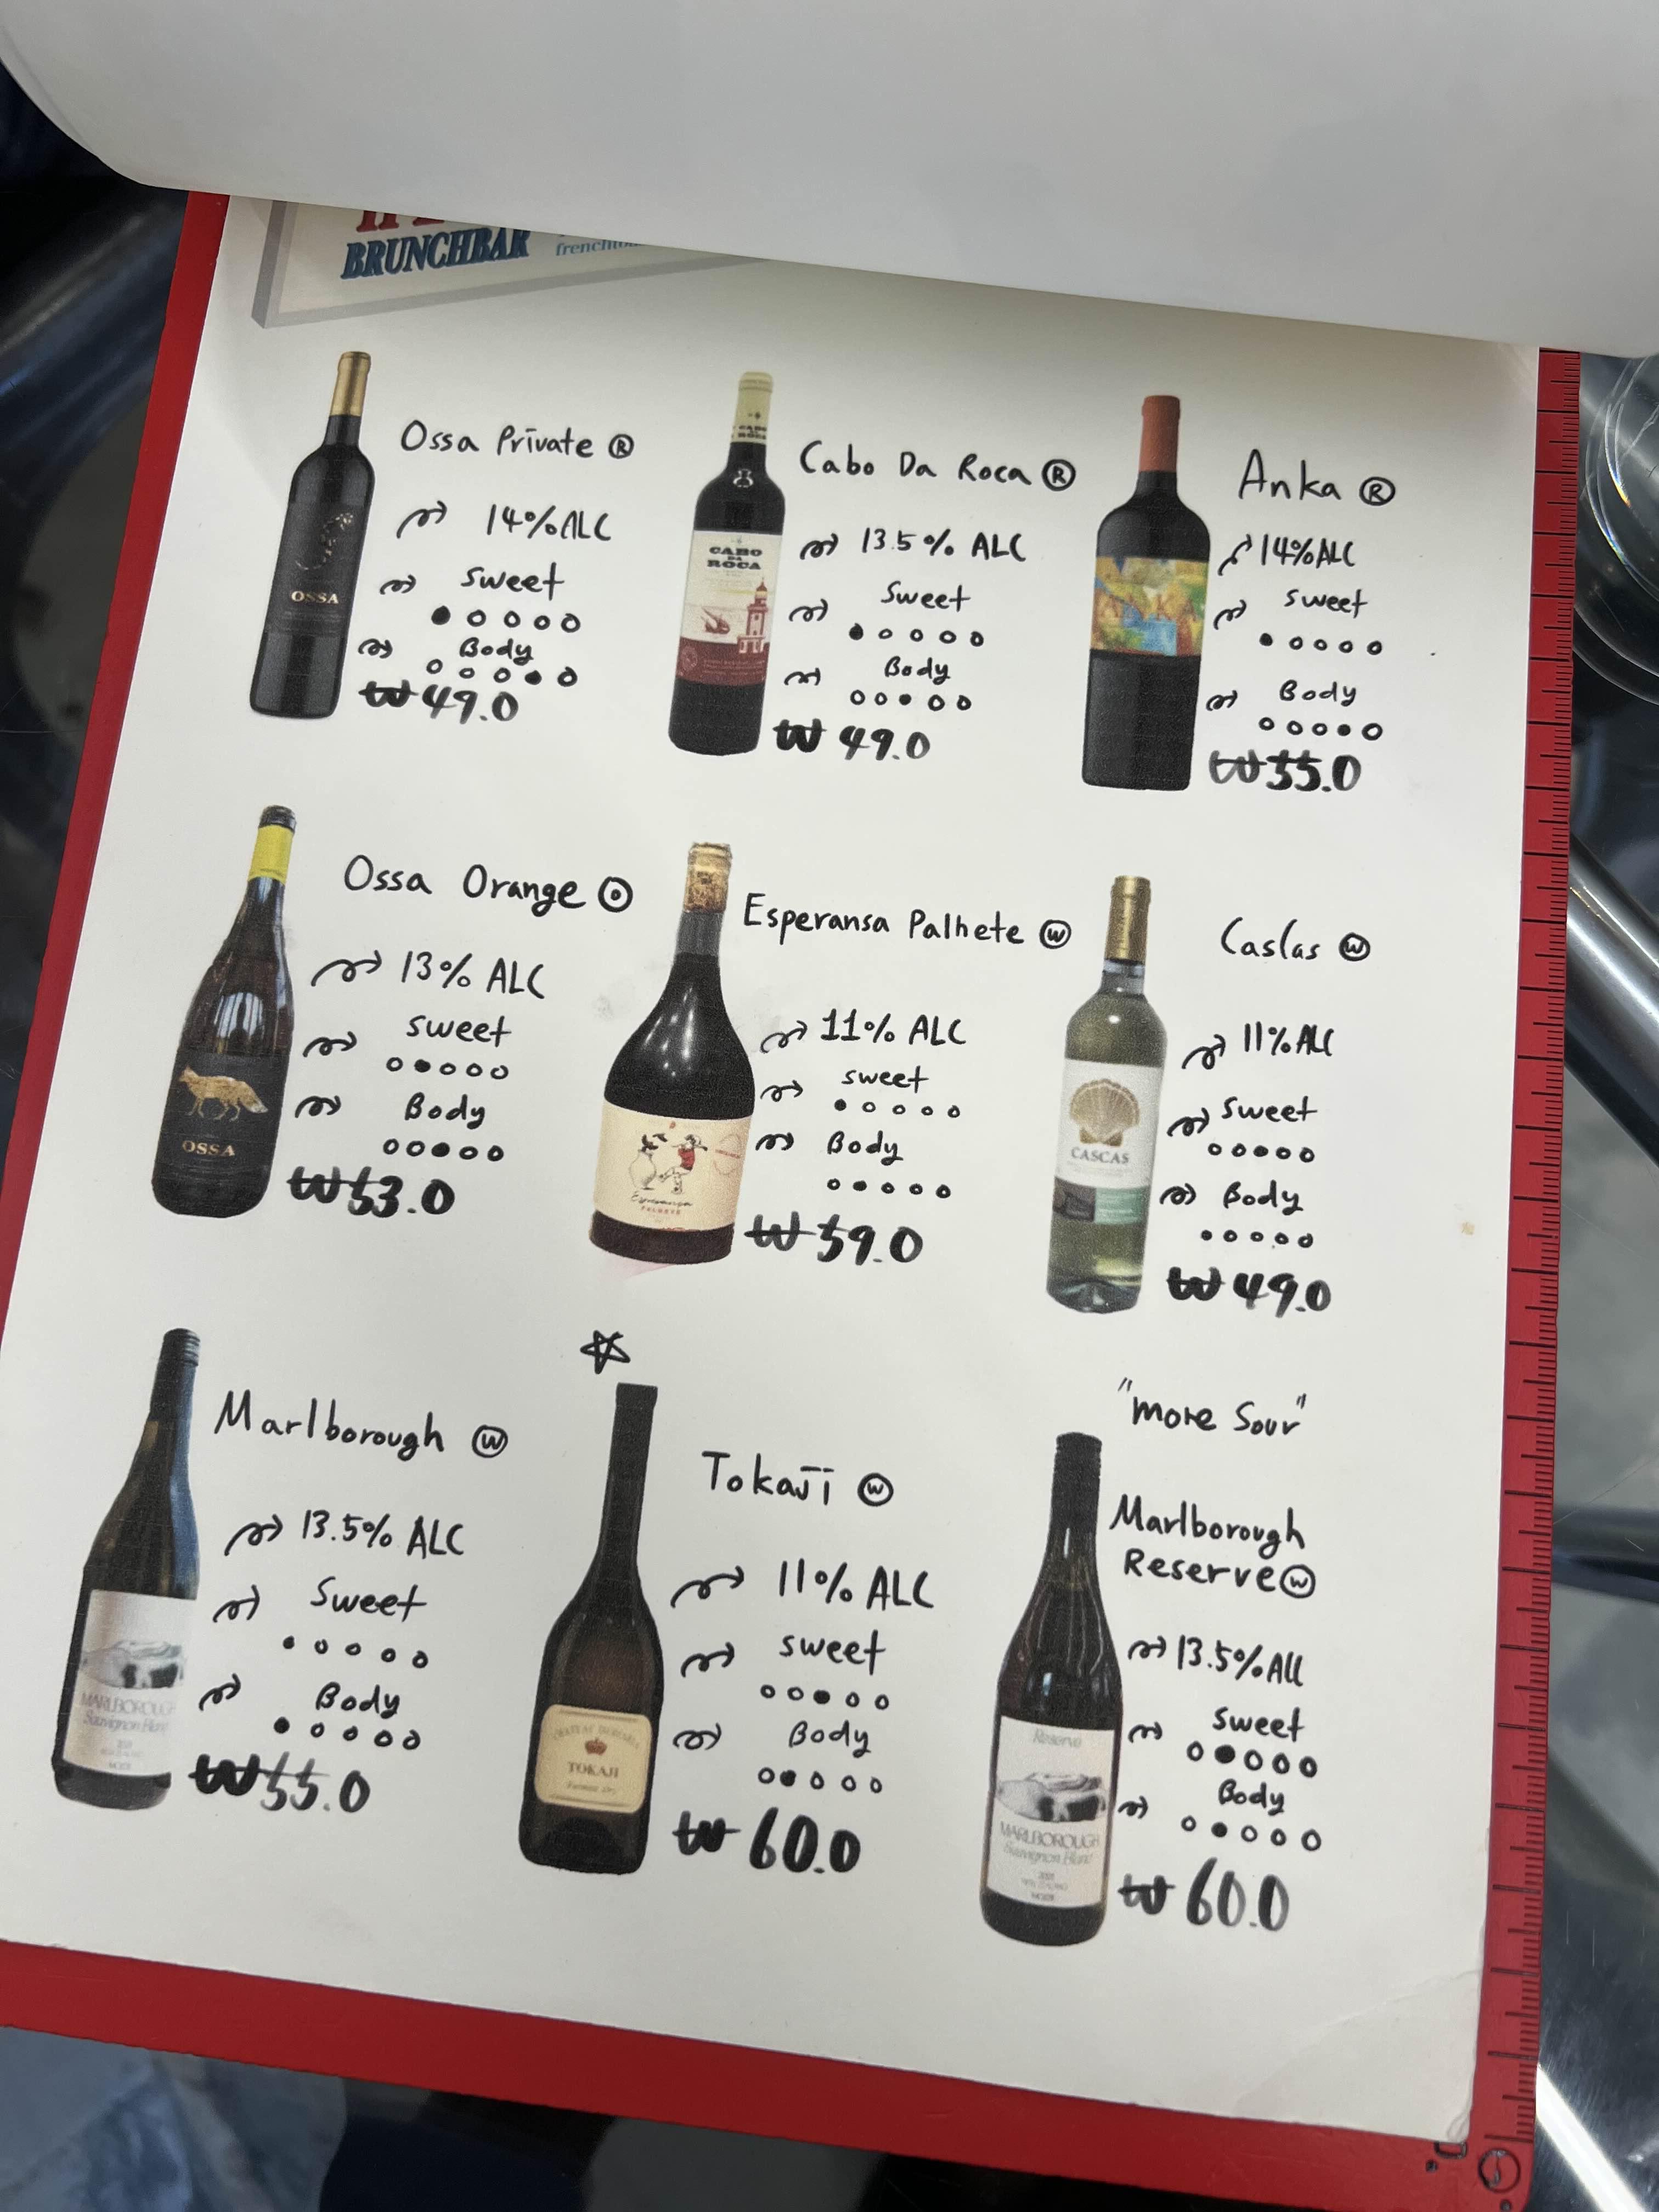 BRUNCHBAR
Ossa Private Ⓡ
14% ALC
sweet
Body
₩ 49.0
CABO
DA
ROCA
Cabo Da Roca Ⓡ
13.5% ALC
Sweet
Body
₩ 49.0
Anka Ⓡ
14% ALC
sweet
Body
₩ 55.0
OSSA
Ossa Orange Ⓞ
13% ALC
sweet
Body
₩ 53.0
OSSA
Esperansa Palhete Ⓦ
11% ALC
sweet
Body
₩ 59.0
Caslas Ⓦ
11% ALC
sweet
Body
₩ 49.0
CASCAS
Marlborough Ⓦ
13.5% ALC
Sweet
Body
₩ 55.0
MARLBOROUGH
Sauvignon Blanc
Tokaji Ⓦ
11% ALC
sweet
Body
₩ 60.0
TOKAJI
"more Sour"
Marlborough
Reserve Ⓦ
13.5% ALC
sweet
Body
₩ 60.0
Reserve
MARLBOROUGH
Sauvignon Blanc